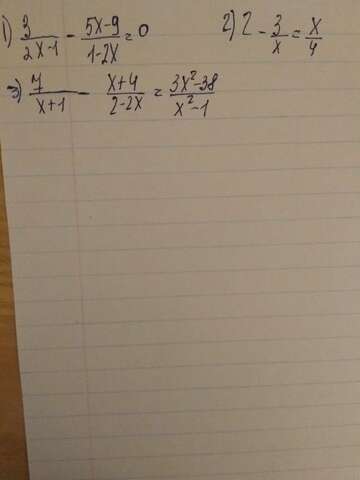 1) 3/(2x-1) - (5x-9)/(1-2x) = 0
2) 2 - 3/x = x/4
3) 7/(x+1) - (x+4)/(2-2x) = (3x²-38)/(x²-1)